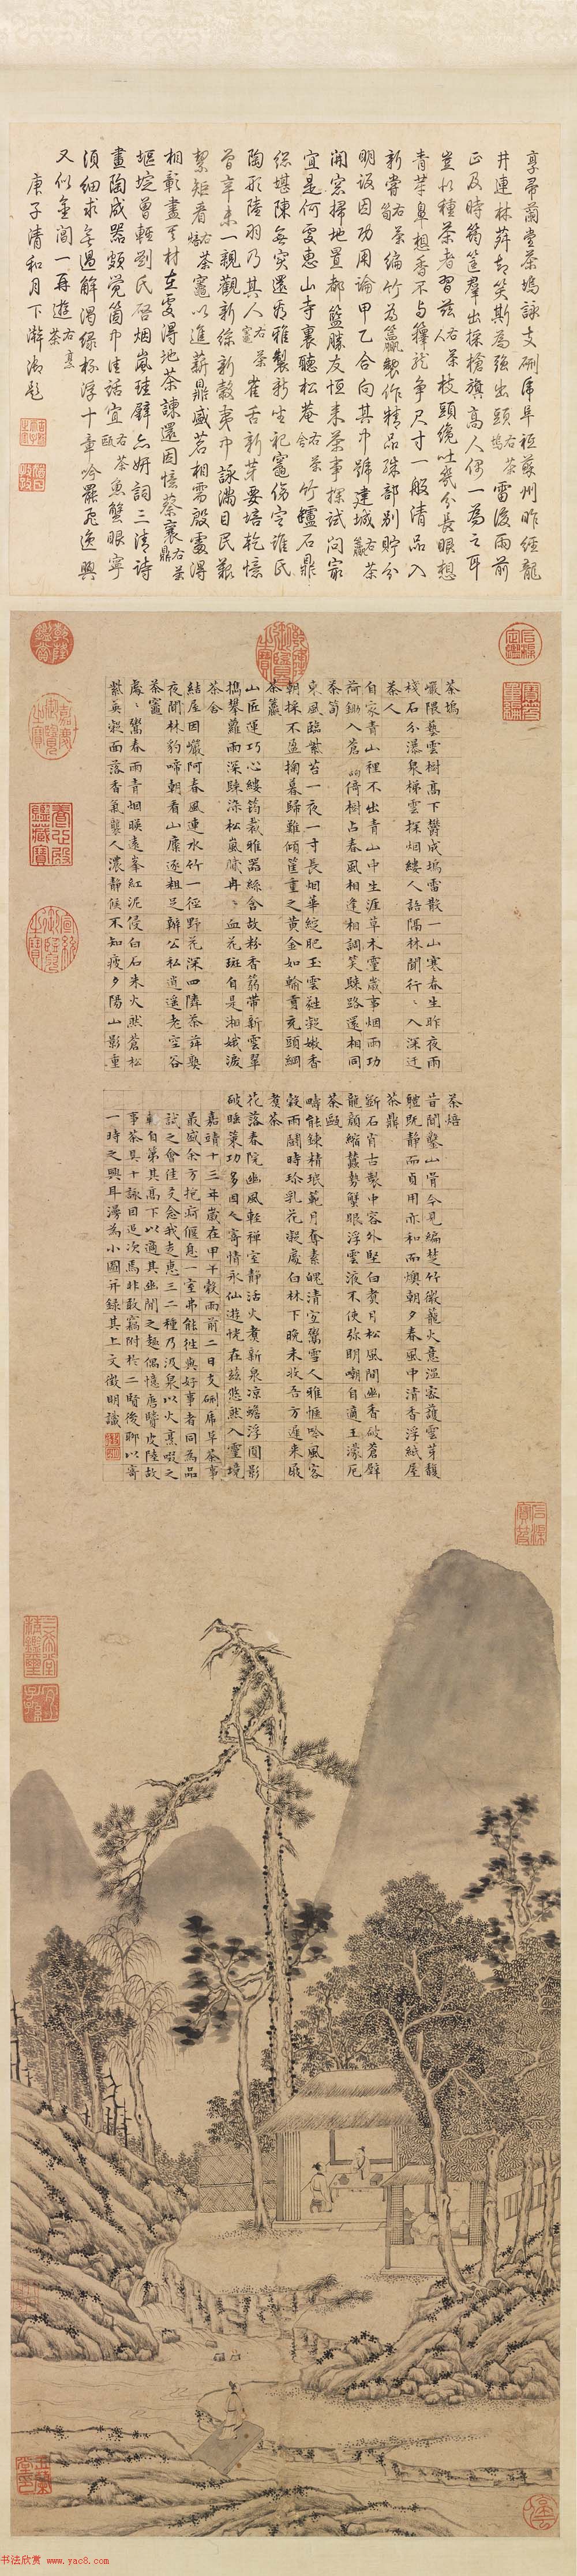 享帚蘭堂茶塢詠支硎虎阜祗蘇州昨經龍
井連林蒔却笑斯為強出頭右茶塢雷後雨前
正及時筠筐群出採槍旗高人偶一為之耳
豈似種茶者習茲右茶人枝頭纔吐幾分長眼想
青芽鼻想香不与籜龍爭尺寸一般清品入
新嘗右茶筍編竹為籯製作精品殊部别貯分
明設因功用論甲乙合向其中號建城右茶籯
開窓掃地置都籃勝友恒来茶事探試問最
宜是何處惠山寺裏聽松菴右茶舍竹罏石鼎
總堪陳無突還看雅製新生祀竈傷定誰氏
陶形陸羽乃其人右茶竈雀舌新芽要培乾憶
曾辛未一親觀新絲新穀夷中詠滿目民艱
絜矩看右茶焙茶竈以進薪鼎盛茗相需殷處得
相彰盡村左處得地茶諫還因憶蔡襄右茶鼎
曾輕劉氏烟嵐珪璧亦妍詞三清詩
畫陶成器頗覺箇中佳話宜右茶甌魚蟹眼寧
須細求無過解渴緑杯浮十章吟罷飛逸興
又似金閶一再遊右煮茶
庚子清和月下澣御題
茶塢
巖隈藝雲樹高下鬱成塢雷散一山寒春生昨夜雨
棧石分瀑泉梯雲探烟縷人語隔林聞行〻入深迂
茶人
自家青山裡不出青山中生涯草木靈歲事烟雨功
荷鋤入蒼藹倚樹占春風相逢相調笑歸路還相同
茶筍
東風臨紫苔一夜一寸長烟華綻肥玉雲蕤凝嫩香
朝採不盈掬暮歸難傾筐重之黃金如輸貢充頭綱
茶籯
山匠運巧心縷筠裁雅器絲含故粉香篛帶新雲翠
携攀蘿雨深歸染松嵐膩冉〻血花斑自是湘娥淚
茶舍
結屋因巖阿春風連水竹一徑野花深四隣茶荈熟
夜聞林豹啼朝看山麋逐粗足辦公私逍遙老空谷
茶竈
處〻鬻春雨青烟映遠峯紅泥侵白石朱火然蒼松
紫英凝面落香氣襲人濃靜候不知疲夕陽山影重
茶焙
昔聞鑿山骨今見編楚竹微籠火意溫密護雲芽馥
體既靜而貞用亦和而燠朝夕春風中清香浮紙屋
茶鼎
斵石肖古製中容外堅白煮月松風間幽香破蒼壁
龍顏縮蠢勢蟹眼浮雲液不使弥明嘲自適王濛厄
茶甌
疇能鍊精珉範月奪素魄清宜鬻雪人雅愜吟風客
穀雨鬭時珍乳花凝處白林下晚未收吾方遲来屐
煮茶
花落春院幽風輕禪室靜活火煮新泉凉蟾浮圓影
破睡策功多因人寄情永仙遊恍在茲悠然入靈境
嘉靖十三年歲在甲午穀雨前二日支硎虎阜茶事
最盛余方抱疴偃息一室弗能往與好事者同為品
試之會佳友念我走惠三二種乃汲泉以火烹啜之
輒自第其高下以適其幽閒之趣偶憶唐賢皮陸故
事茶具十詠因追次焉非敢竊附於二賢後聊以寄
一時之興耳漫為小圖并錄其上文徵明識
乾隆鑑賞
乾隆御覽之寶
石渠定鑑
寶笈重編
嘉慶御覽之寶
養心殿鑑藏寶
宣統御覽之寶
石渠寶笈
三希堂精鑑璽
宜子孫
书法欣赏 www.yac8.com